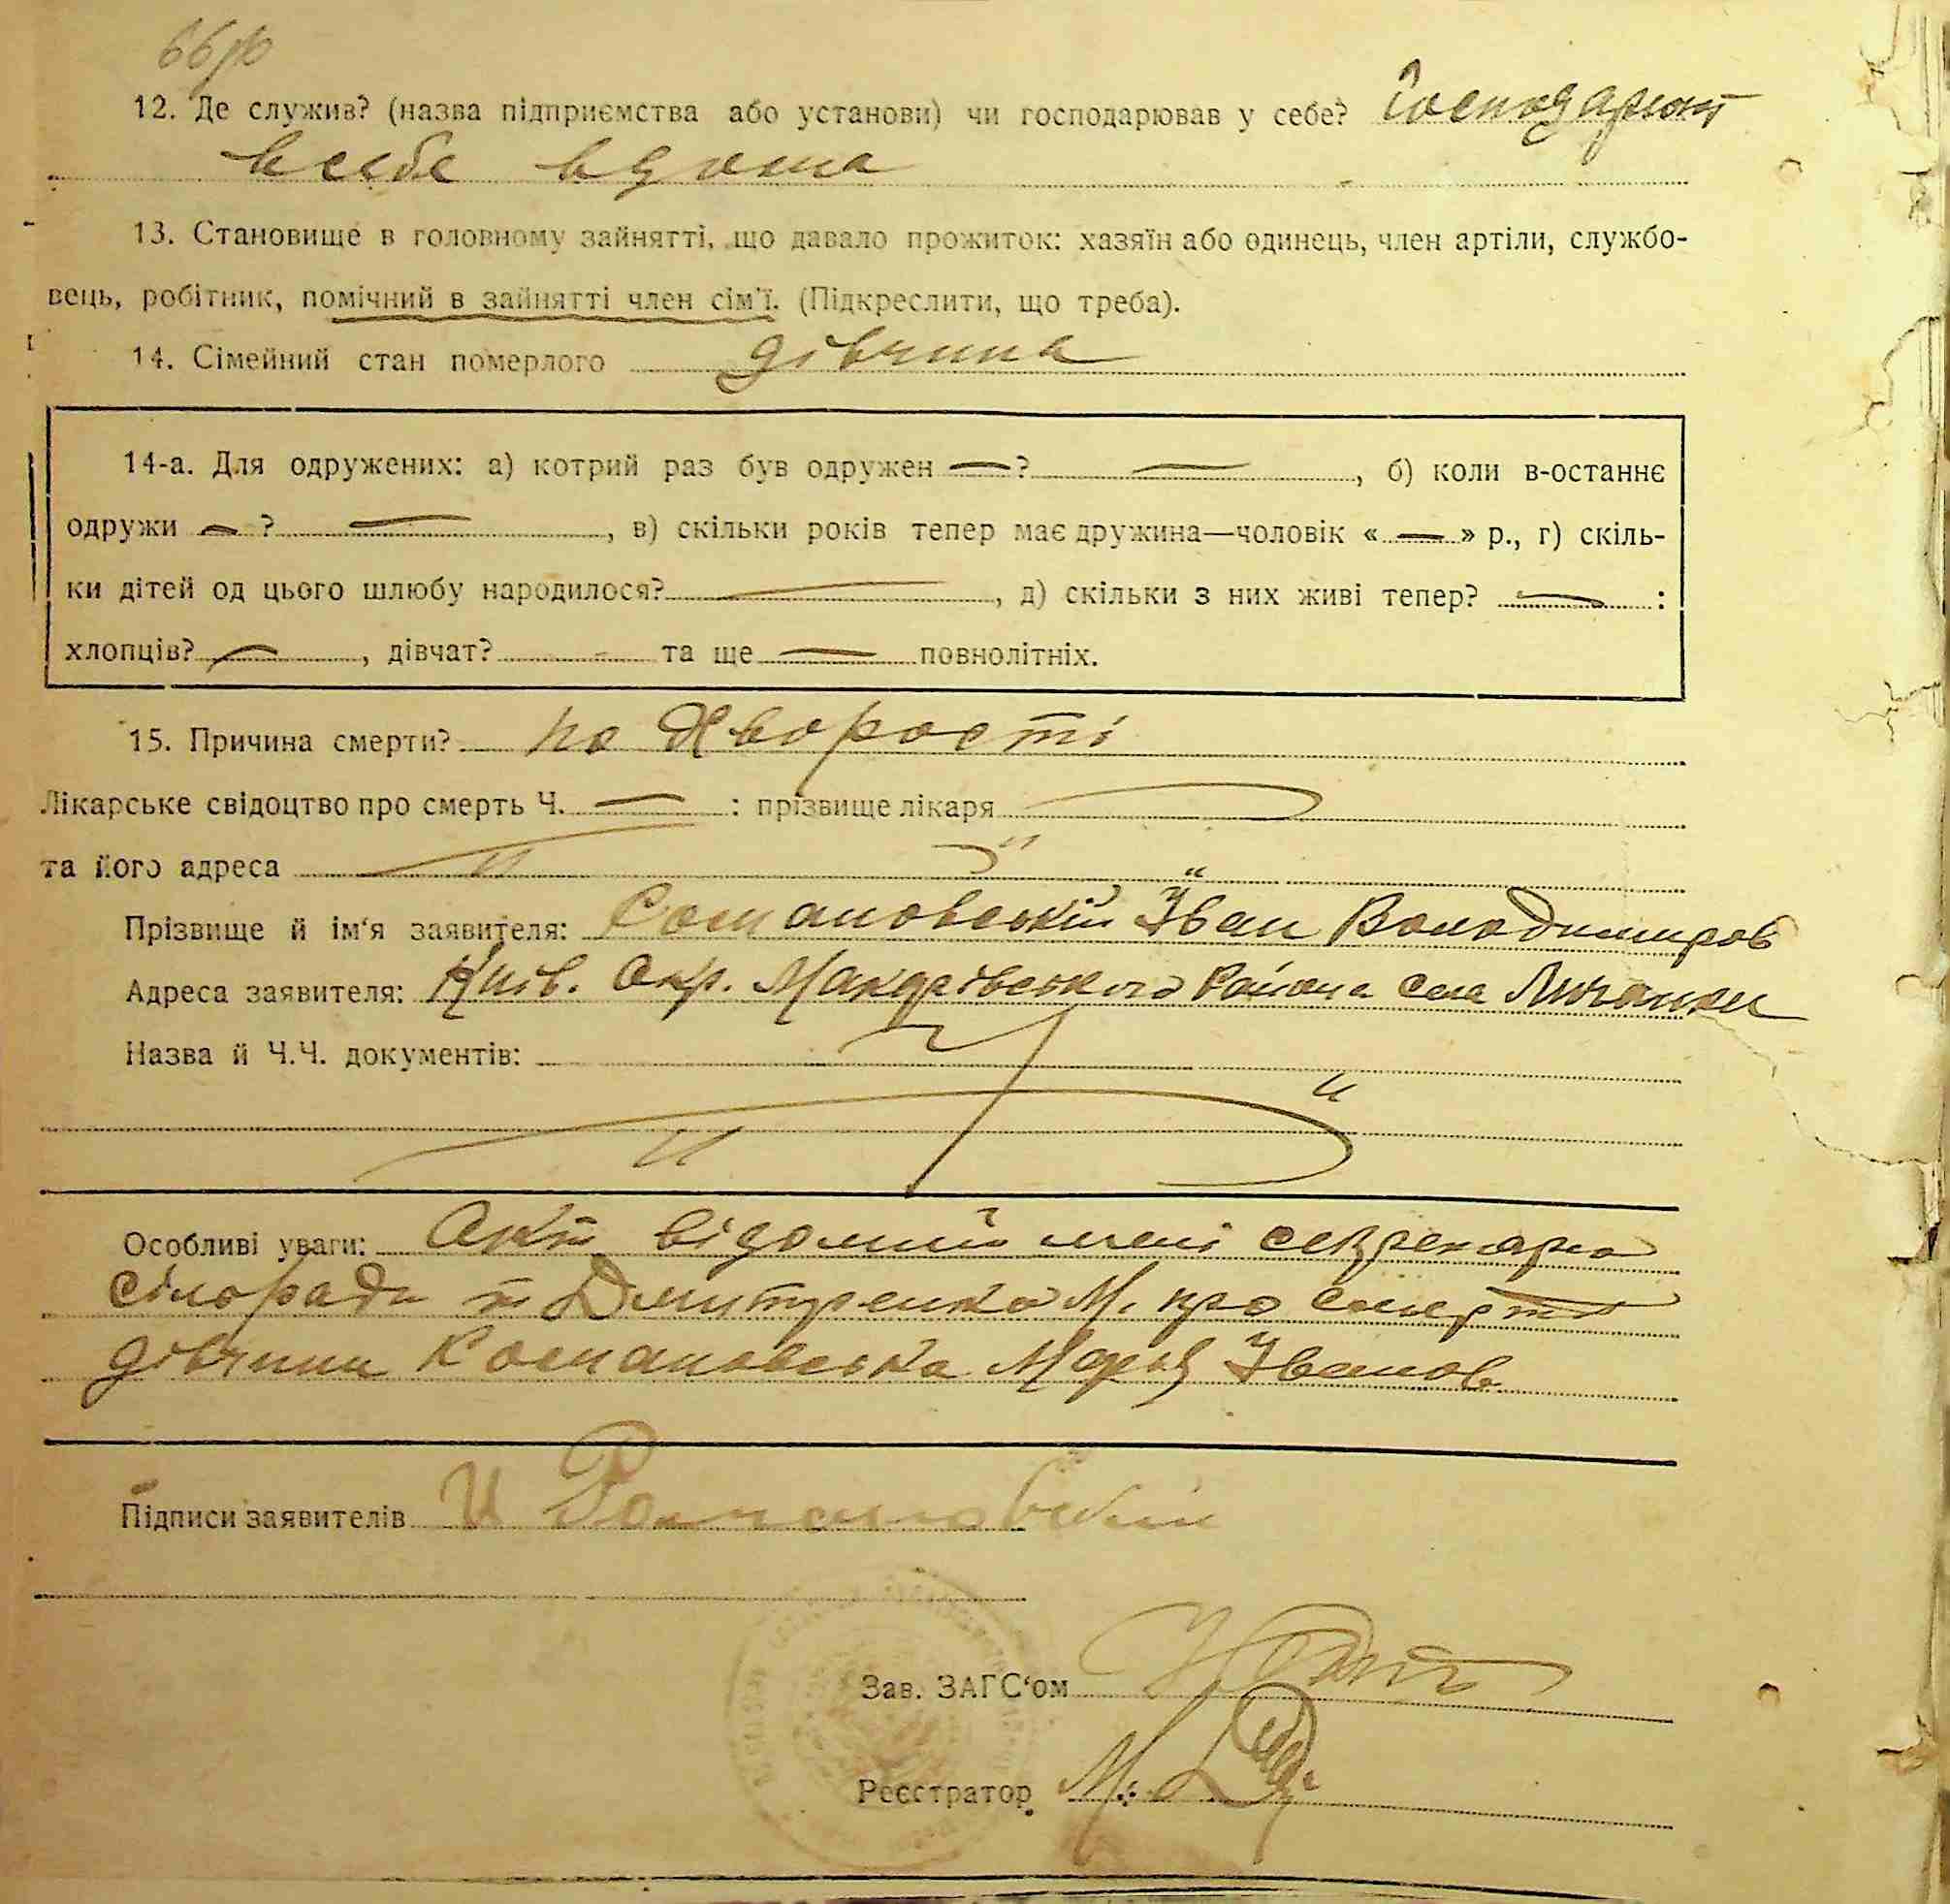 12. Де служив? (назва підприємства або установи) чи господарював у себе? Господарюют
в себе вдома
13. Становище в головному зайнятті, що давало прожиток: хазяїн або одинець, член артіли, службо-
вець, робітник, помічний в зайнятті член сім'ї. (Підкреслити, що треба).
14. Сімейний стан померлого дівчина
14-а. Для одружених: а) котрий раз був одружен — ? —, б) коли в-останнє
одружи — ? —, в) скільки років тепер має дружина—чоловік « — » р., г) скіль-
ки дітей од цього шлюбу народилося? —, д) скільки з них живі тепер? — :
хлопців? —, дівчат? - та ще — повнолітніх.
15. Причина смерти? по Хворості
Лікарське свідоцтво про смерть Ч. — : прізвище лікаря
та його адреса
Прізвище й ім'я заявителя: Іван Володимиров
Адреса заявителя: Київ. Окр. Макарівського Району Села Личанки
Назва й Ч.Ч. документів:
Особливі уваги: Акт відомий мені секретарю
сілоради т Дмитренко М. про смерть
дівчини Марія Іванов
Підписи заявителів И Романовский
Зав. ЗАГС'ом
Реєстратор М.